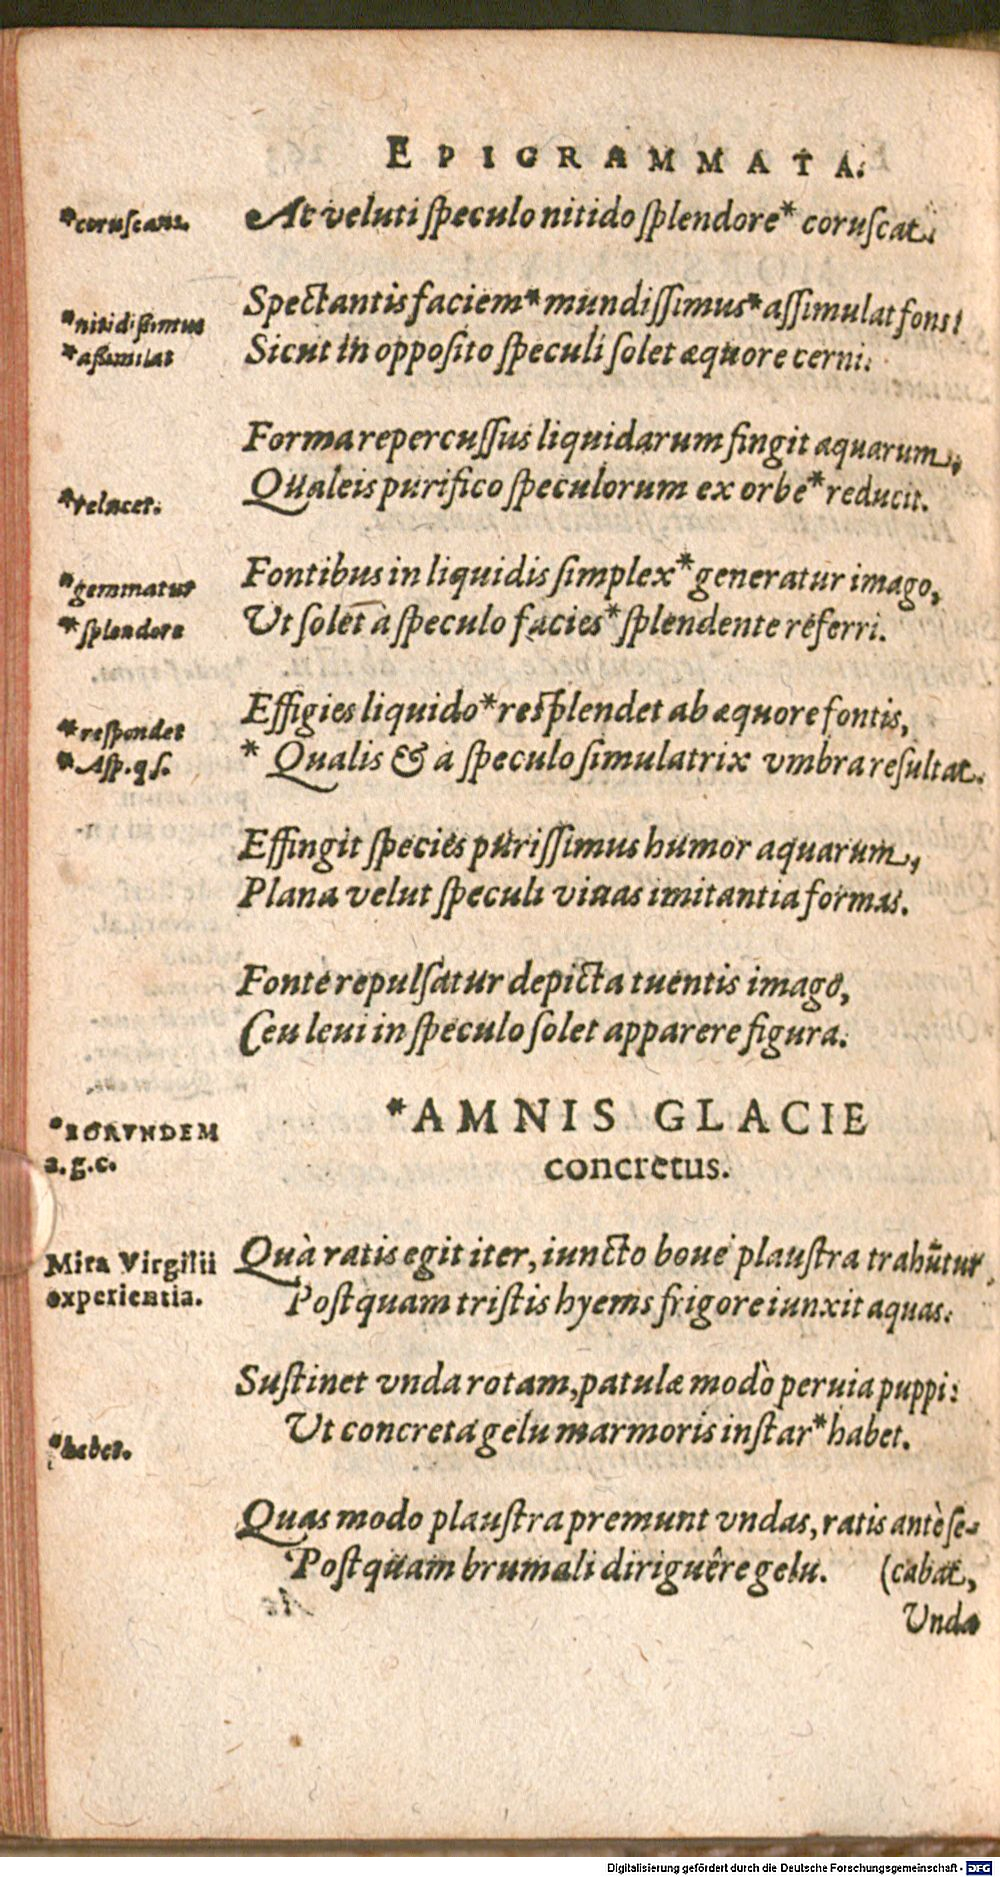 EPIGRAMMATA.
*coruscans.
At veluti speculo nitido splendore* coruscat.
Spectantis faciem* mundissimus* assimulat fons:
*nitidissimus
*assimilat
Sicut in opposito speculi solet æquore cerni.
Forma repercussus liquidarum fingit aquarum,
Qualeis purifico speculorum ex orbe* reducit.
*relucet.
Fontibus in liquidis simplex* generatur imago,
*gemmatur
Ut solet à speculo facies* splendente referri.
*splendore
Effigies liquido* resplendet ab æquore fontis,
*respondet
* Qualis & a speculo simulatrix vmbra resultat.
*Asp. q s.
Effingit species purissimus humor aquarum,
Plana velut speculi viuas imitantia formas.
Fonte repulsatur depicta tuentis imago,
Ceu leui in speculo solet apparere figura.
*AMNIS GLACIE
*EORVNDEM
a.g.c.
concretus.
Mira Virgilii
experientia.
Quà ratis egit iter, iuncto boue plaustra trahũtur,
Postquam tristis hyems frigore iunxit aquas.
Sustinet vnda rotam, patulæ modò peruia puppi:
Ut concreta gelu marmoris instar* habet.
*habes.
Quas modo plaustra premunt vndas, ratis antè se-
Postquam brumali diriguêre gelu. (cabat,
Unda
Digitalisierung gefördert durch die Deutsche Forschungsgemeinschaft - DFG